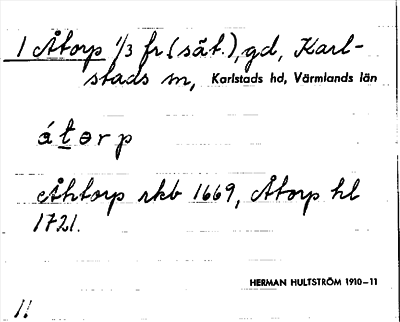 1 Åtorp 1/3 fr (sät.), gd, Karl-
stads sn, Karlstads hd, Värmlands län
átorp
Åhtorp rkb 1669, Åtorp hl
1721.
HERMAN HULTSTRÖM 1910–11
1!